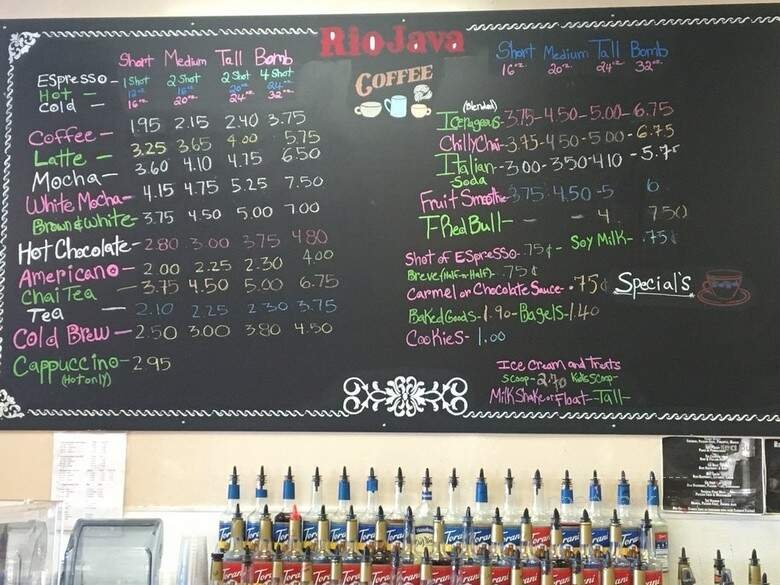 Rio Java
COFFEE
Short Medium Tall Bomb
Espresso - 1 Shot 2 Shot 2 Shot 4 Shot
Hot - 12oz 16oz 20oz 24oz
Cold - 16oz 20oz 24oz 32oz
Coffee - 1.95 2.15 2.40 3.75
Latte - 3.25 3.65 4.00 5.75
Mocha - 3.60 4.10 4.75 6.50
White Mocha - 4.15 4.75 5.25 7.50
Brown & White - 3.75 4.50 5.00 7.00
Hot Chocolate - 2.80 3.00 3.75 4.80
Americano - 2.00 2.25 2.30 4.00
Chai Tea - 3.75 4.50 5.00 6.75
Tea - 2.10 2.25 2.30 3.75
Cold Brew - 2.50 3.00 3.80 4.50
Cappuccino - 2.95
(Hot only)
Short Medium Tall Bomb
16oz 20oz 24oz 32oz
(Blended)
Icepageous - 3.75 - 4.50 - 5.00 - 6.75
Chilly Chai - 3.75 - 4.50 - 5.00 - 6.75
Italian - 3.00 - 3.50 - 4.10 - 5.75
Soda
Fruit Smoothie 3.75 4.50 - 5 6
T-Red Bull - - - 4. 7.50
Shot of Espresso - .75¢ - Soy Milk - .75¢
Breve (Half-n-Half) - .75¢
Carmel or Chocolate Sauce - .75¢
Special's
Baked Goods - 1.90 - Bagels - 1.40
Cookies - 1.00
Ice Cream and Treats
Scoop - 2.70 Kids Scoop -
Milk Shake or Float - Tall -
Torani